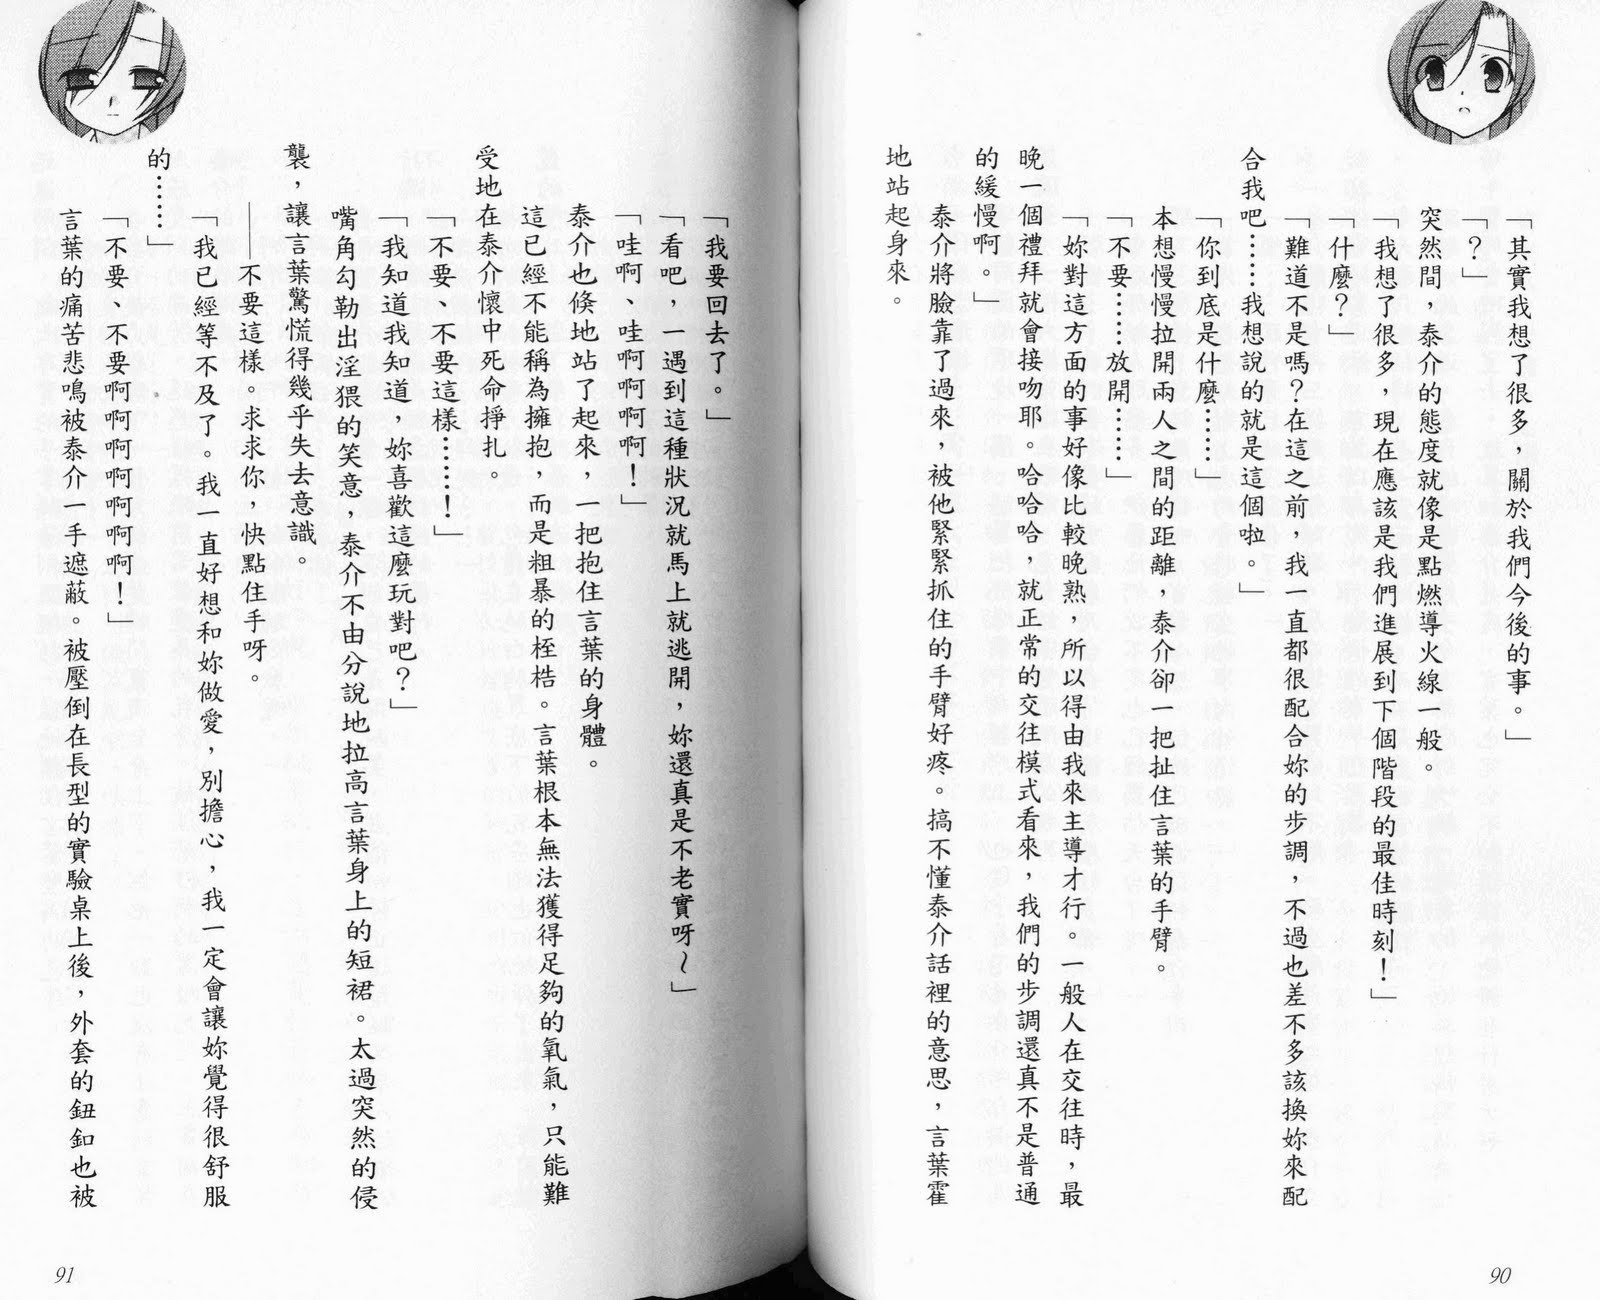 「其實我想了很多，關於我們今後的事。」
「？」
突然間，泰介的態度就像是點燃導火線一般。
「我想了很多，現在應該是我們進展到下個階段的最佳時刻！」
「什麼？」
「難道不是嗎？在這之前，我一直都很配合妳的步調，不過也差不多該換妳來配
合我吧……我想說的就是這個啦。」
「你到底是什麼……」
本想慢慢拉開兩人之間的距離，泰介卻一把扯住言葉的手臂。
「不要……放開……」
「妳對這方面的事好像比較晚熟，所以得由我來主導才行。一般人在交往時，最
晚一個禮拜就會接吻耶。哈哈哈，就正常的交往模式看來，我們的步調還真不是普通
的緩慢啊。」
泰介將臉靠了過來，被他緊緊抓住的手臂好疼。搞不懂泰介話裡的意思，言葉霍
地站起身來。
90
「我要回去了。」
「看吧，一遇到這種狀況就馬上就逃開，妳還真是不老實呀～」
「哇啊、哇啊啊啊啊！」
泰介也倏地站了起來，一把抱住言葉的身體。
這已經不能稱為擁抱，而是粗暴的桎梏。言葉根本無法獲得足夠的氧氣，只能難
受地在泰介懷中死命掙扎。
「不要、不要這樣……！」
「我知道我知道，妳喜歡這麼玩對吧？」
嘴角勾勒出淫猥的笑意，泰介不由分說地拉高言葉身上的短裙。太過突然的侵
襲，讓言葉驚慌得幾乎失去意識。
──不要這樣。求求你，快點住手呀。
「我已經等不及了。我一直好想和妳做愛，別擔心，我一定會讓妳覺得很舒服
的……」
「不要、不要啊啊啊啊啊啊！」
言葉的痛苦悲鳴被泰介一手遮蔽。被壓倒在長型的實驗桌上後，外套的鈕釦也被
91